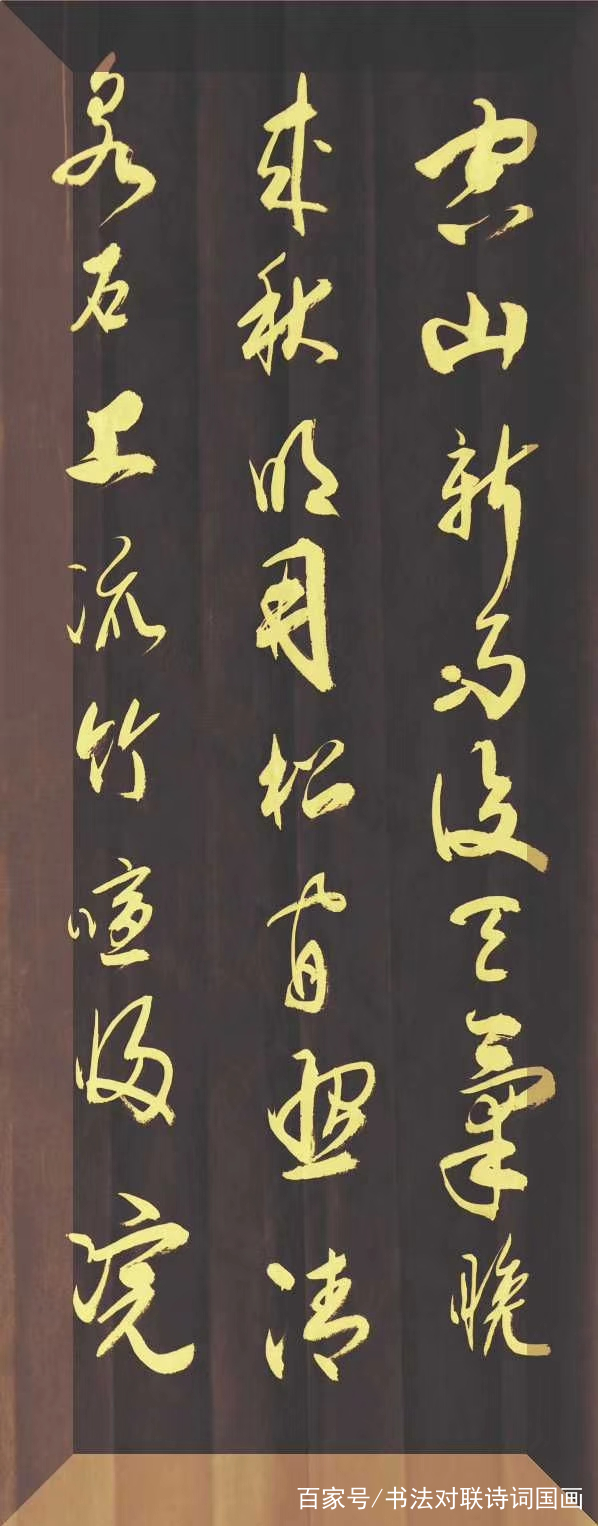 空山新雨後天氣晚
來秋明月松間照清
泉石上流竹喧歸浣
百家号/书法对联诗词国画